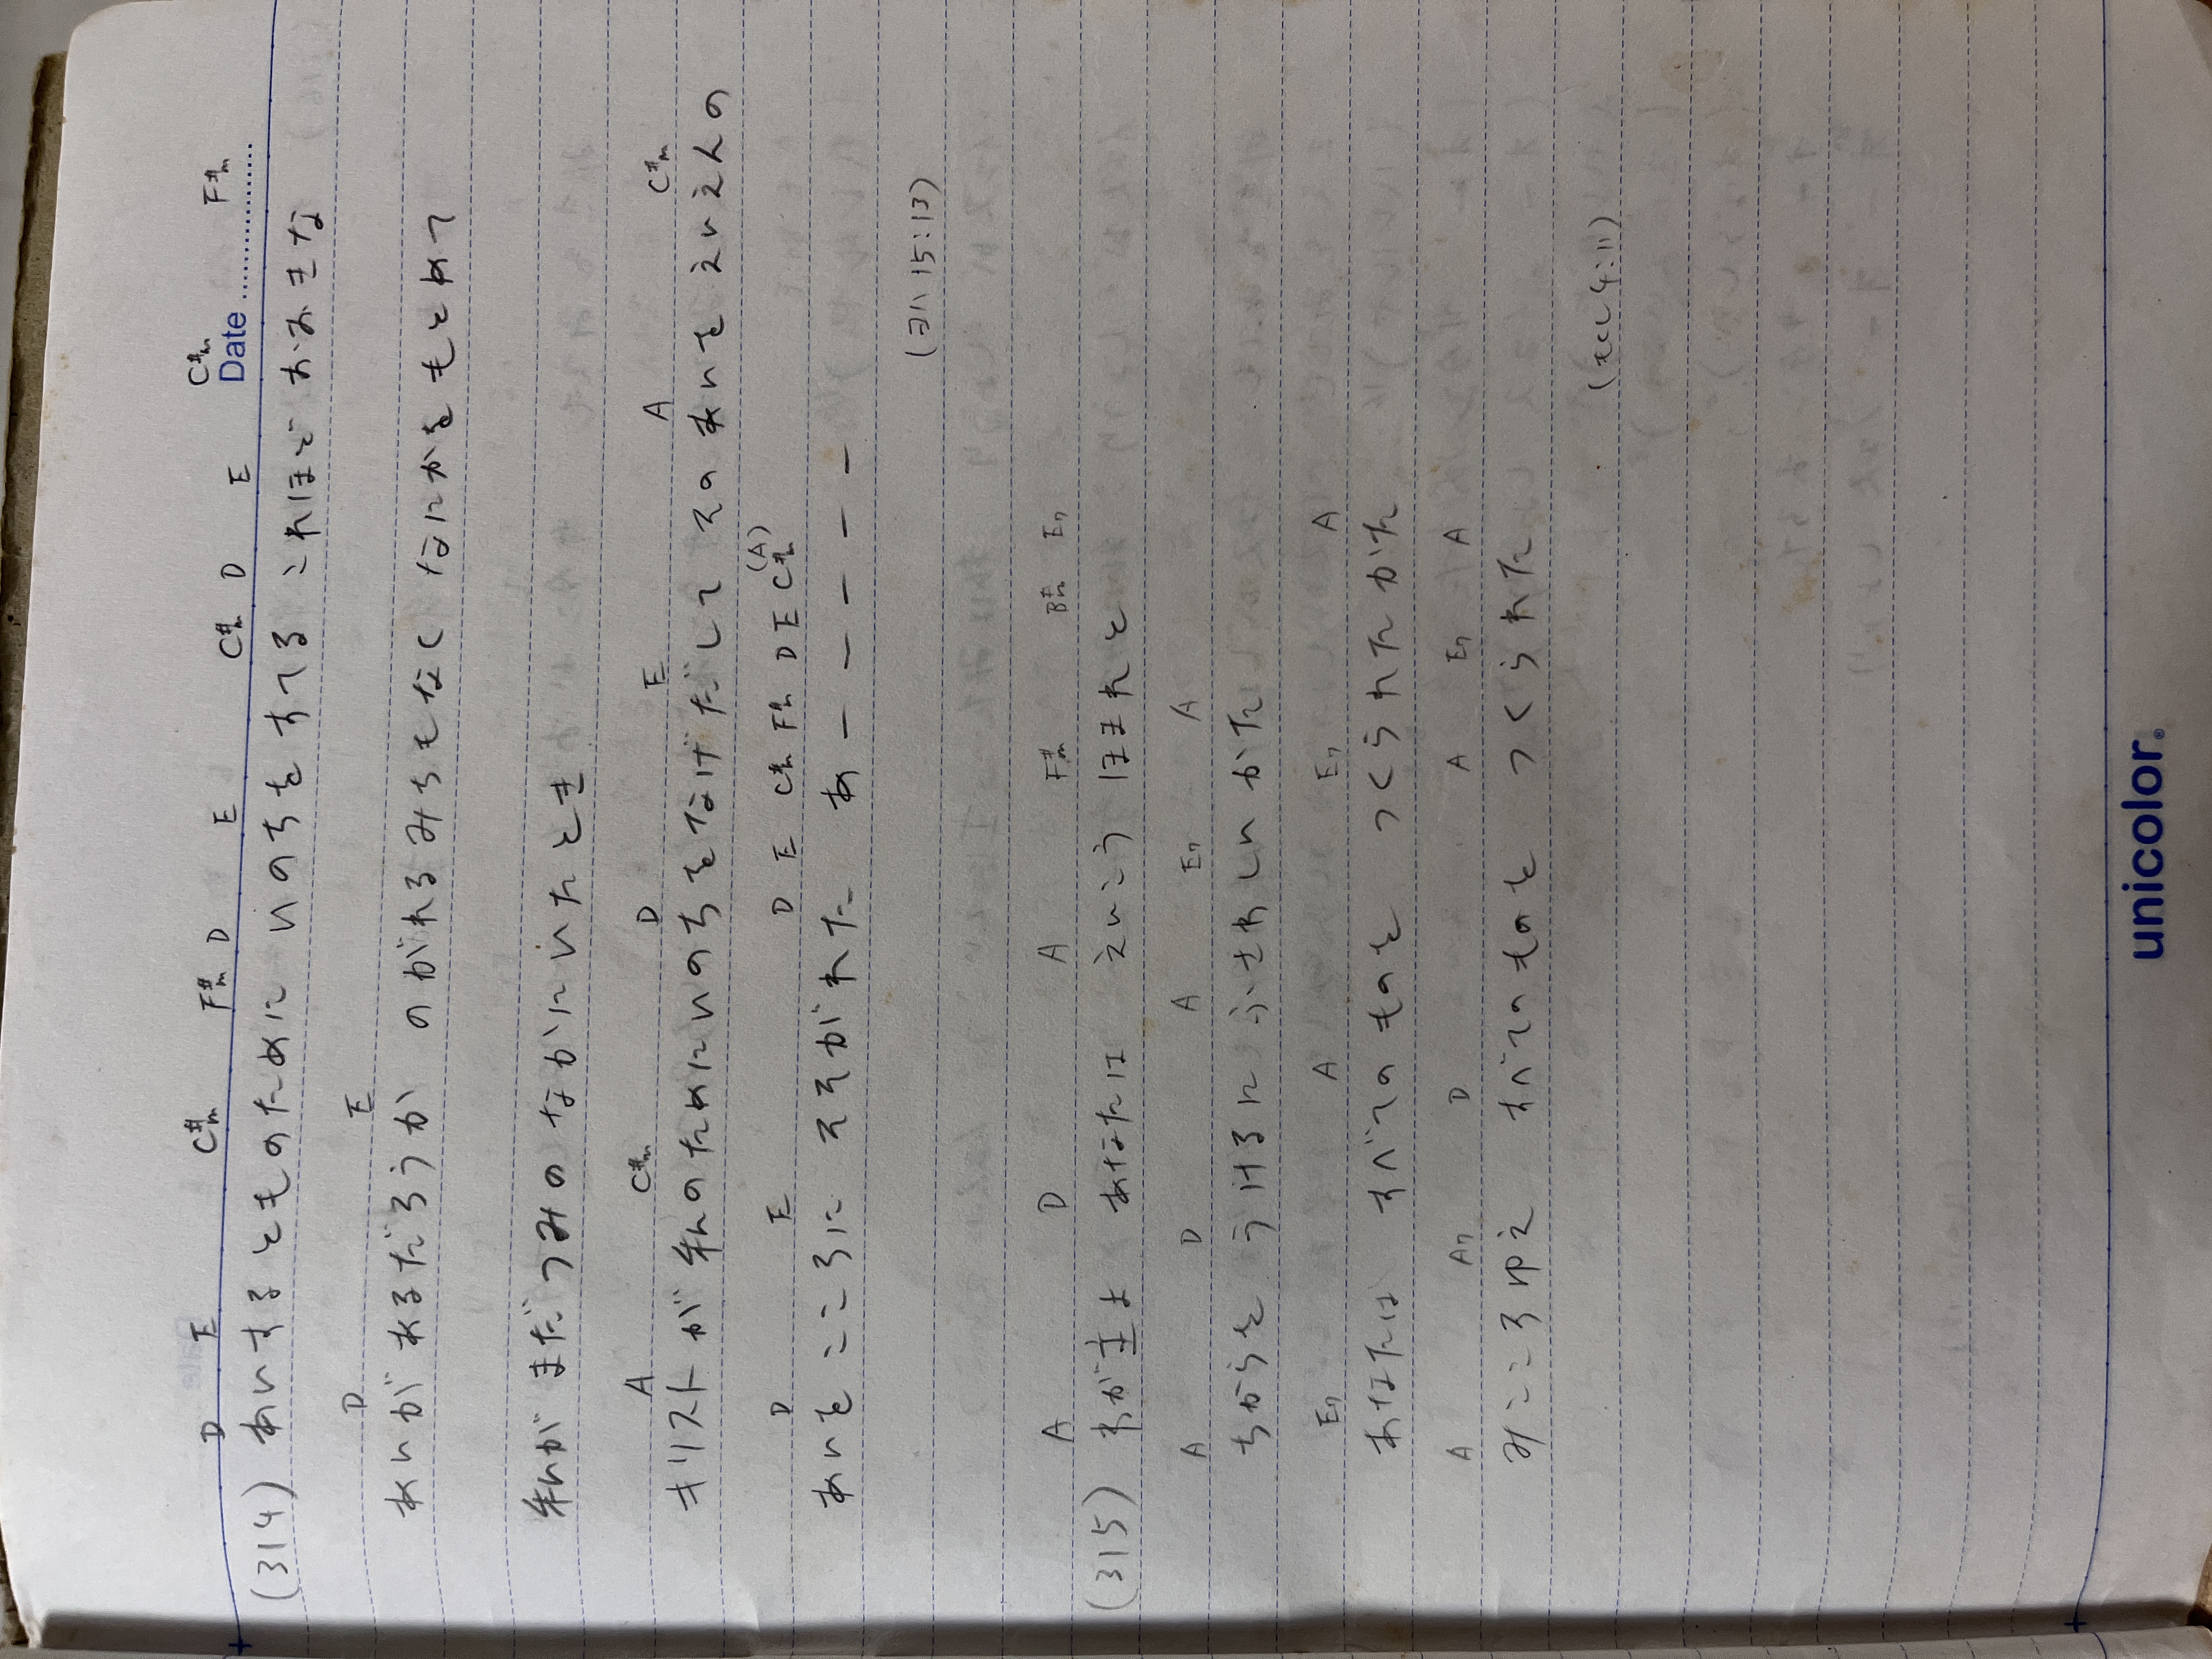 D E C#m F#m D E C#m D E C#m F#m
Date
(314) あいするとものために いのちをすてる これほどおおきな
D E
あいがあるだろうか のがれるみちもなく なにかをもとめて
私が まだつみの なかにいたとき
A C#m D E A C#m
キリストが 私のためにいのちをなげだして そのあいを えいえんの
D E D E C#m F#m D E C#m (A)
あいを こころに そそがれた あーーーーー
(ヨハ 15:13)
A D A F#m B#m E7
(315) わが主よ あなたは えいこう ほまれと
A D A E7 A
ちからを うけるに ふさわしい かた
E7 A E7 A
あなたは すべてのものを つくられたかた
A A7 D A E7 A
みこころゆえ すべてのものを つくられた
(もくし 4:11)
unicolor®